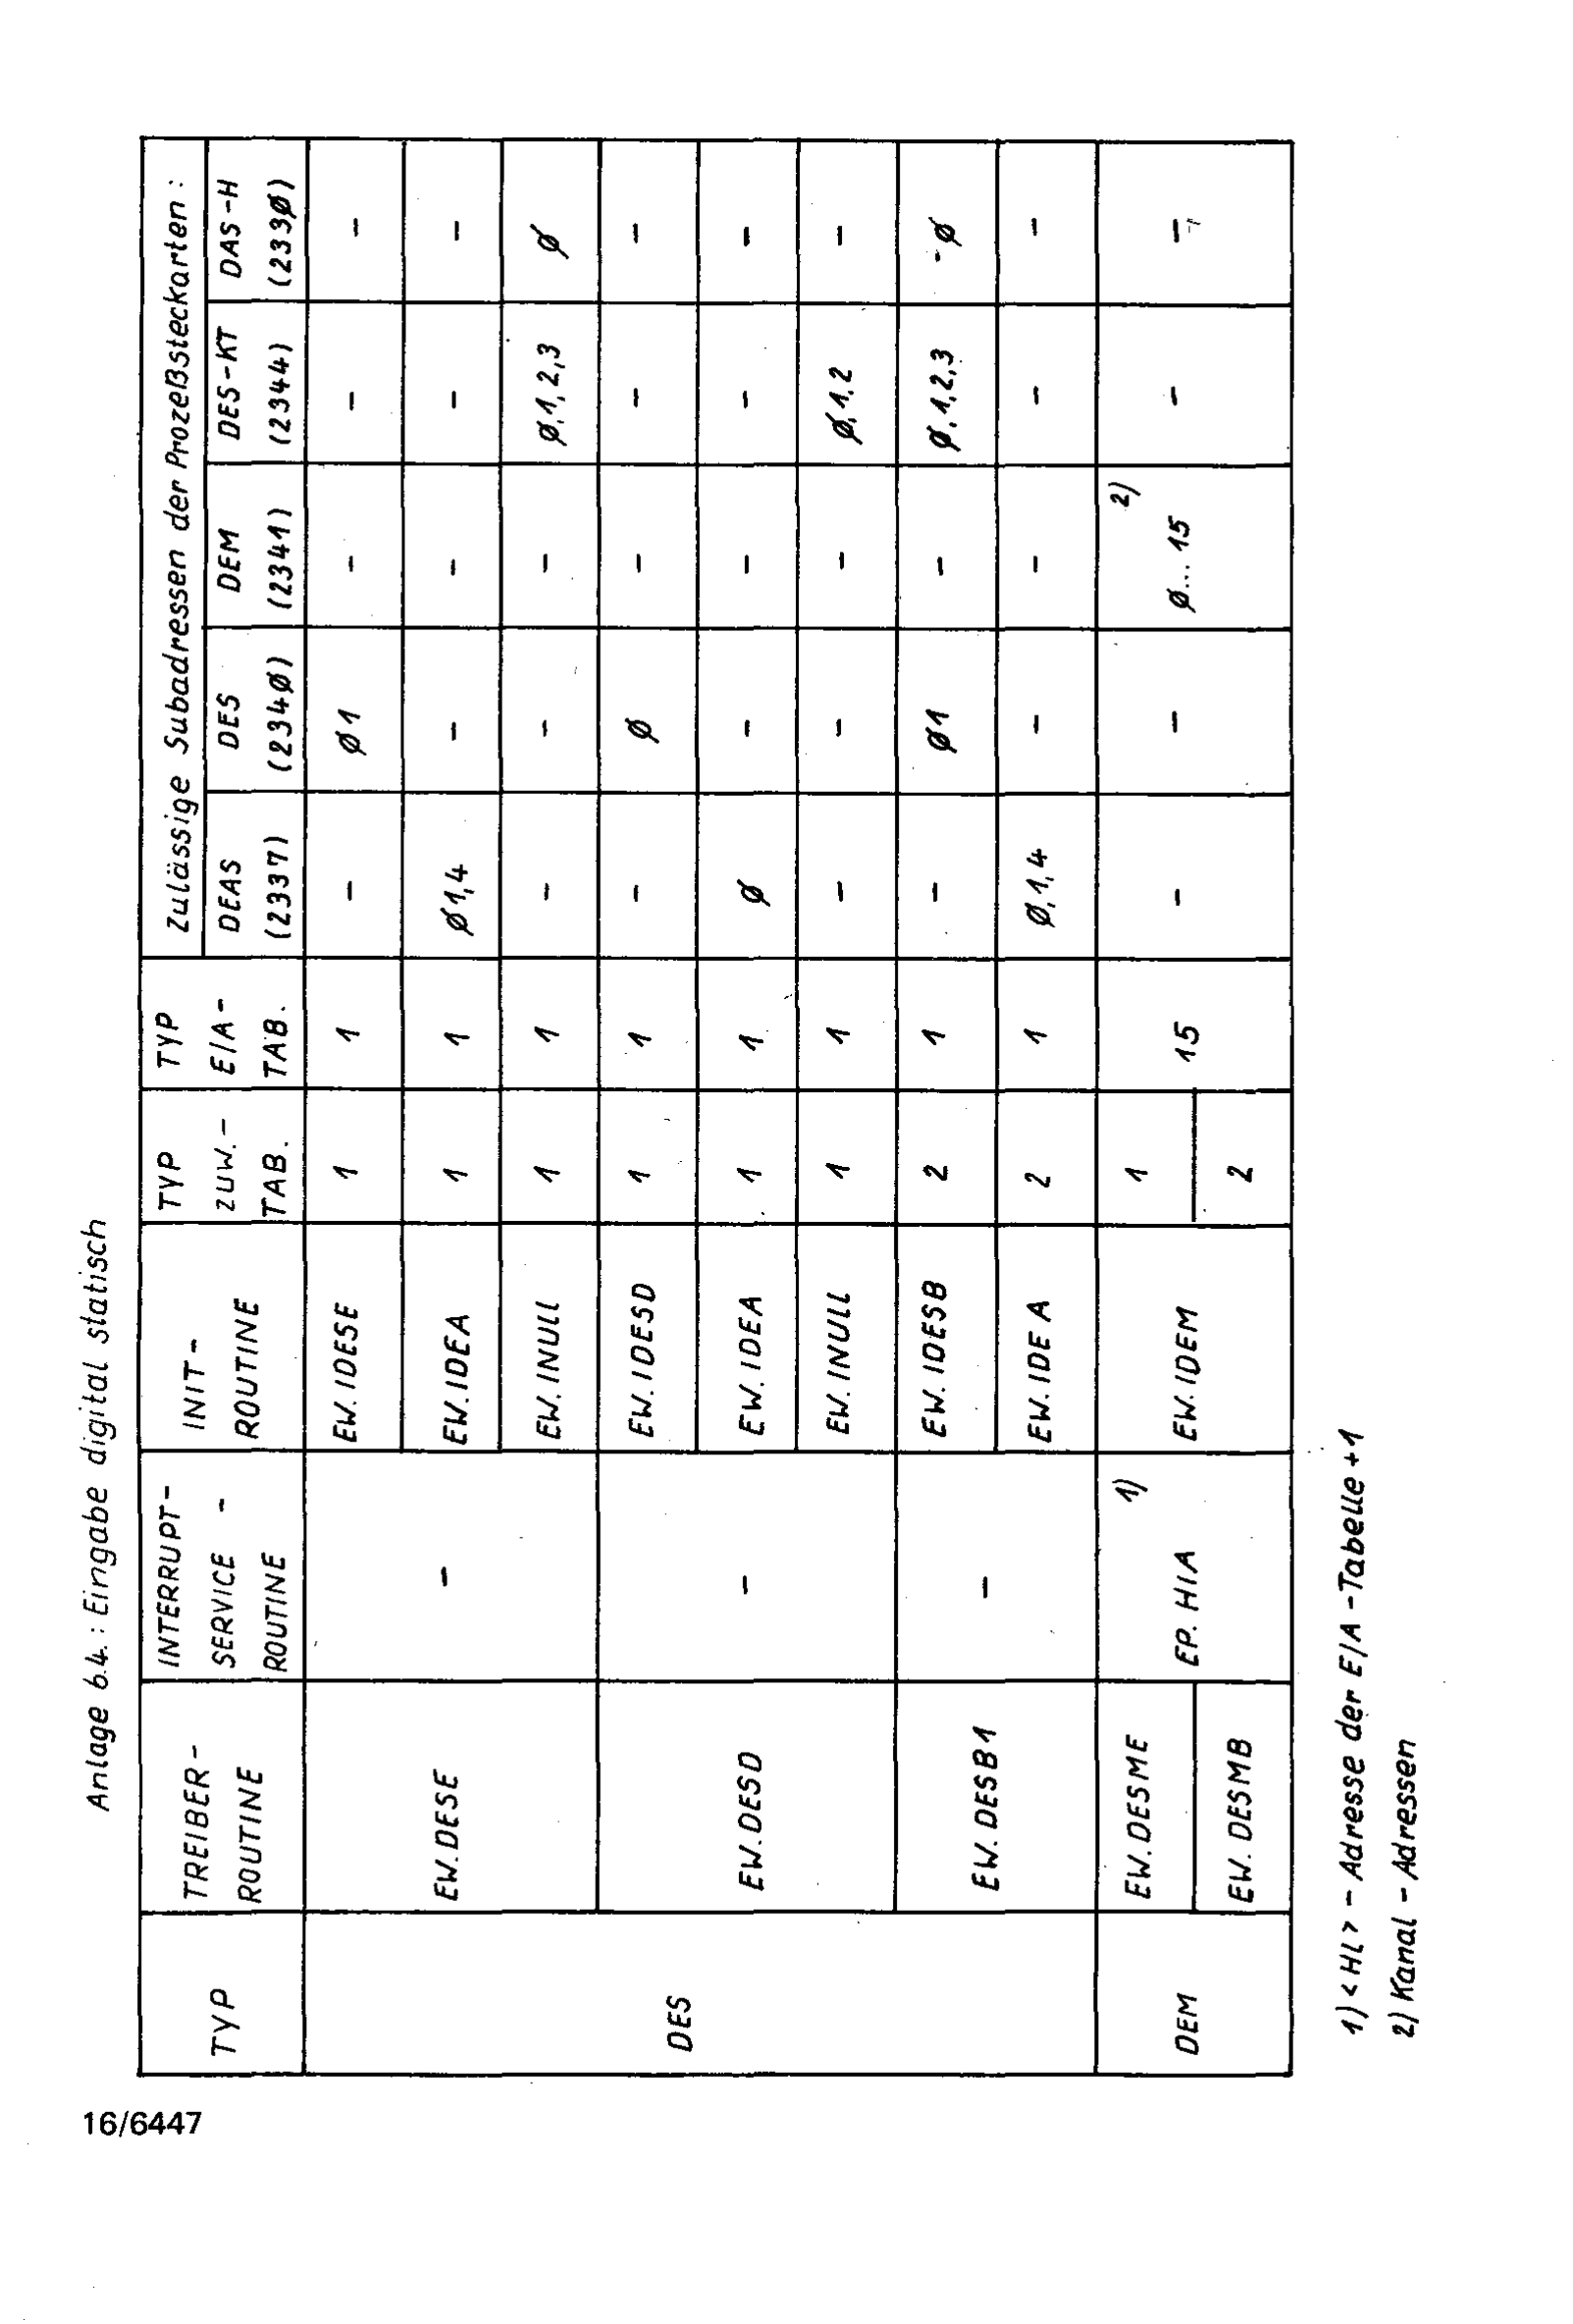 Anlage 6.4.: Eingabe digital statisch
TYP
TREIBER-
ROUTINE
INTERRUPT-
SERVICE -
ROUTINE
INIT-
ROUTINE
TYP
ZUW.-
TAB.
TYP
E/A-
TAB.
Zulässige Subadressen der Prozeßsteckarten:
DEAS
(2337)
DES
(234Ø)
DEM
(2341)
DES-KT
(2344)
DAS-H
(233Ø)
DES
EW.DESE
-
EW.IDESE 1 1 - Ø1 - - -
EW.IDEA 1 1 Ø1,4 - - - -
EW.INULL 1 1 - - - Ø,1,2,3 Ø
EW.DESD
-
EW.IDESD 1 1 - Ø - - -
EW.IDEA 1 1 Ø - - - -
EW.INULL 1 1 - - - Ø,1,2 -
EW.DESB1
-
EW.IDESB 2 1 - Ø1 - Ø,1,2,3 -Ø
EW.IDE A 2 1 Ø,1,4 - - - -
DEM
EW.DESME
EW. DESMB
EP. HIA 1)
EW.IDEM
1
2
15 - - Ø...15 2) - -
1) <HL> - Adresse der E/A -Tabelle +1
2) Kanal - Adressen
16/6447